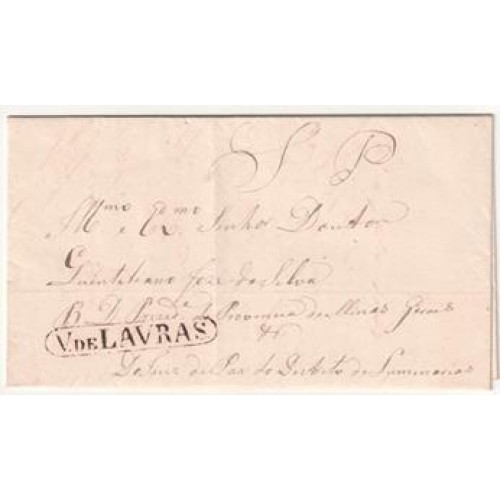 S P
Illmo e Exmo Senhor Doutor
Quintiliano José da Silva
Preside da Provincia de Minas Geraes
V. DE LAVRAS
&
Do Juiz de Paz do Destricto de Luminarias